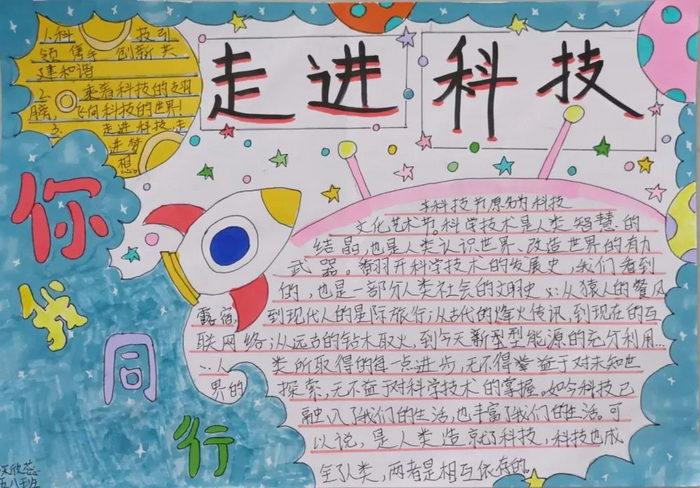 走进科技
1.科 技引
领 携手 创新共
建和谐
2. 乘着科技的翅
膀, 飞向科技的世界!
3. 走进科技 走
进梦
想。
你
我
同
行
本科技节原名为科技
文化艺术节,科学技术是人类智慧的
结晶,也是人类认识世界、改造世界的有力
武器。翻开科学技术的发展史,我们看到
的,也是一部分人类社会的文明史:从猿人的餐风
露宿 到现代人的星际旅行;从古代的烽火传讯,到现在的互
联网络;从远古的钻木取火,到今天新型型能源的充分利用...
...人 类所取得的每一点进步,无不得益于对未知世
界的 探索,无不益于对科学技术的掌握。如今科技已
融入了我们的生活,也丰富了我们的生活。可
以说,是人类造就了科技,科技也成
全了人类,两者是相互依存的。
欣蕊
五八班